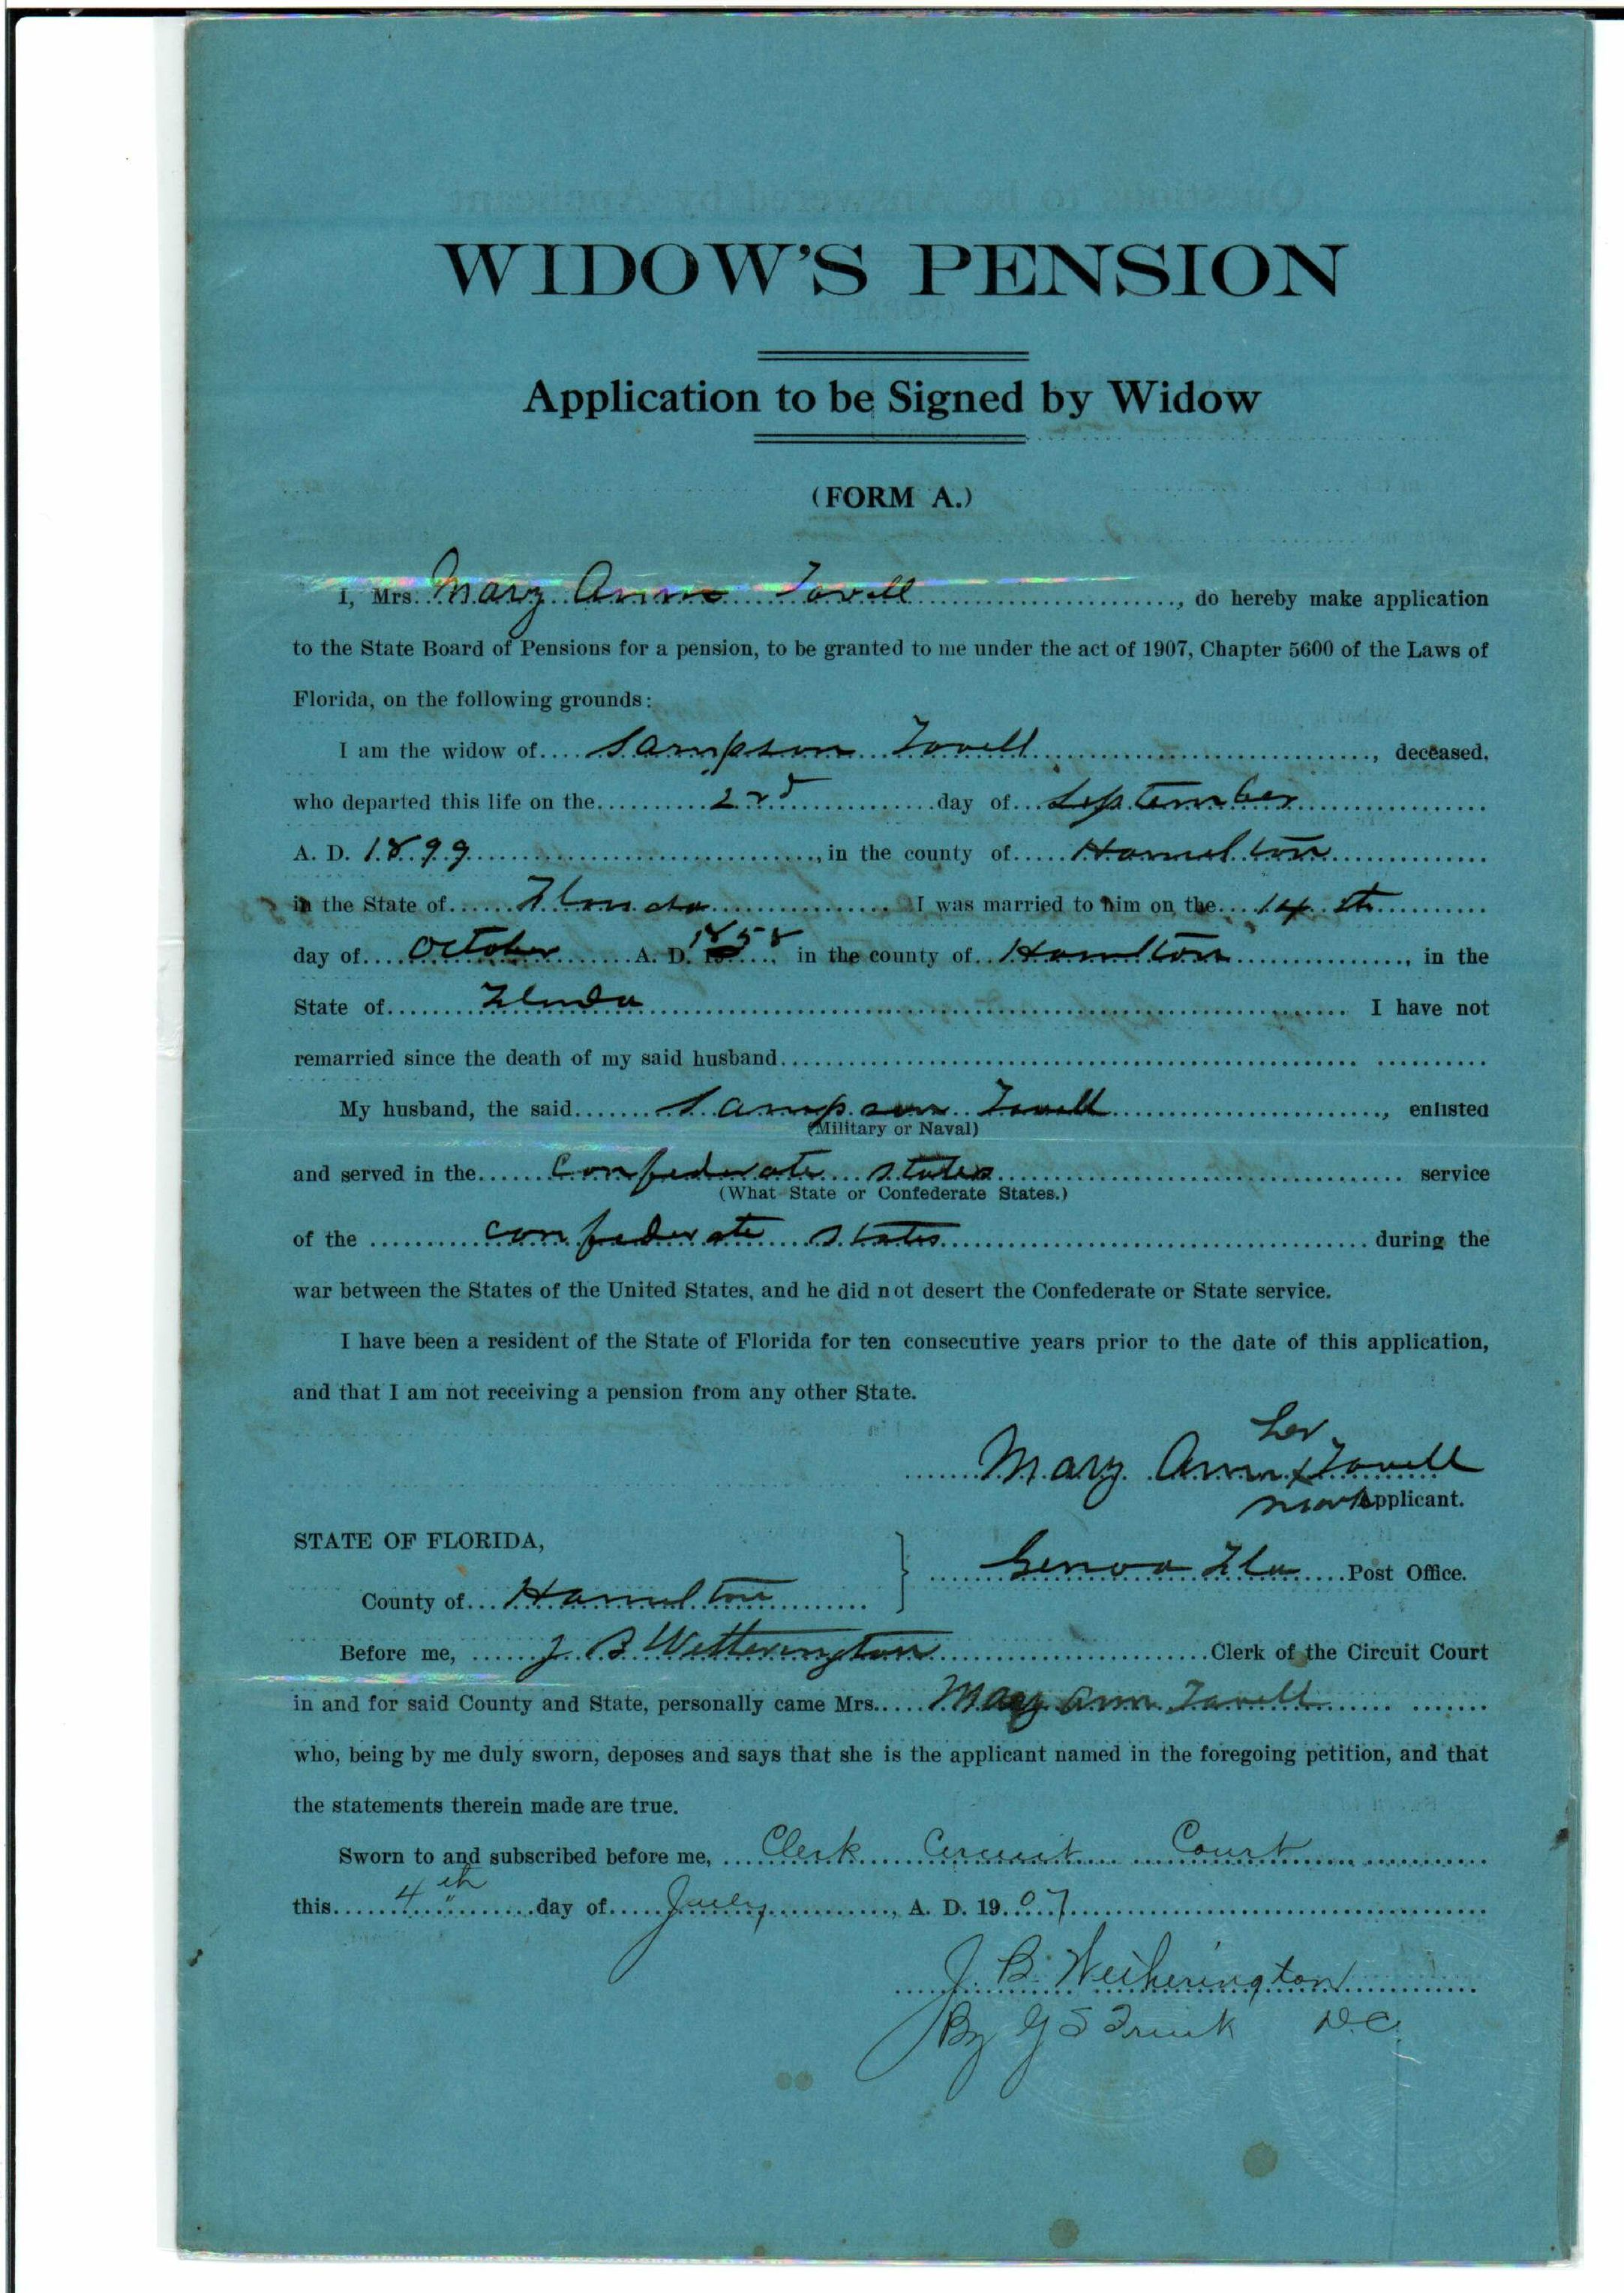 WIDOW'S PENSION
Application to be Signed by Widow
(FORM A.)
I, Mrs. Mary Ann Tovell, do hereby make application
to the State Board of Pensions for a pension, to be granted to me under the act of 1907, Chapter 5600 of the Laws of
Florida, on the following grounds:
I am the widow of Sampson Tovell, deceased,
who departed this life on the 2nd day of September
A. D. 1899, in the county of Hamilton
in the State of Florida. I was married to him on the 14th
day of October A. D. 1858 in the county of Hamilton, in the
State of Florida I have not
remarried since the death of my said husband
My husband, the said Sampson Tovell, enlisted
(Military or Naval)
and served in the Confederate States service
(What State or Confederate States.)
of the Confederate States during the
war between the States of the United States, and he did not desert the Confederate or State service.
I have been a resident of the State of Florida for ten consecutive years prior to the date of this application,
and that I am not receiving a pension from any other State.
her
Mary Ann x Tovell
mark Applicant.
STATE OF FLORIDA,
Genoa Fla Post Office.
County of Hamilton
Before me, J B Wetherington Clerk of the Circuit Court
in and for said County and State, personally came Mrs. Mary Ann Tovell
who, being by me duly sworn, deposes and says that she is the applicant named in the foregoing petition, and that
the statements therein made are true.
Sworn to and subscribed before me, Clerk Circuit Court
this 4th day of July, A. D. 1907
J. B. Wetherington
By G S D.C.